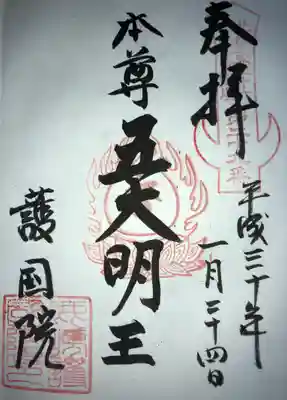 奉拝
平成三十年
一月二十四日
本尊
五大明王
護国院